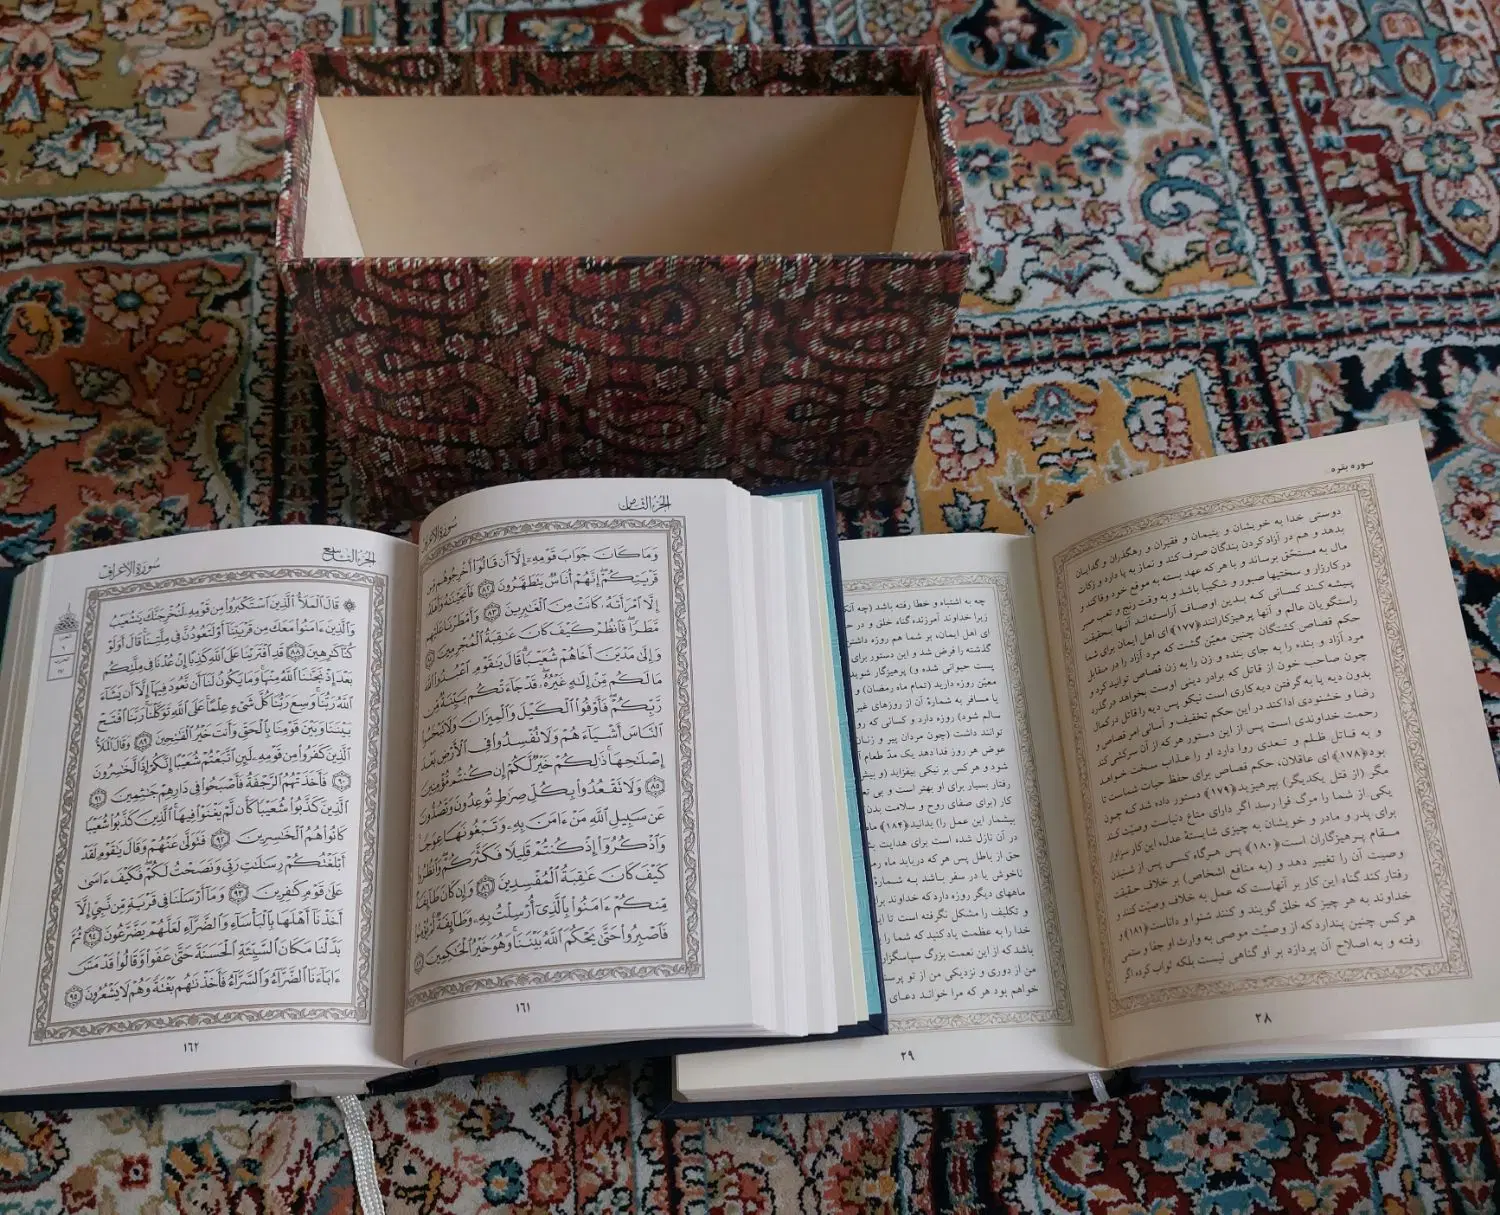 الجزء الثامن
سورة الأعراف
وَمَا كَانَ جَوَابَ قَوْمِهِۦٓ إِلَّآ أَن قَالُوٓا۟ أَخْرِجُوهُم مِّن
قَرْيَتِكُمْ إِنَّهُمْ أُنَاسٌ يَتَطَهَّرُونَ ﴿٨٢﴾ فَأَنجَيْنَٰهُ وَأَهْلَهُۥٓ
إِلَّا ٱمْرَأَتَهُۥ كَانَتْ مِنَ ٱلْغَٰبِرِينَ ﴿٨٣﴾ وَأَمْطَرْنَا عَلَيْهِم
مَّطَرًا فَٱنظُرْ كَيْفَ كَانَ عَٰقِبَةُ ٱلْمُجْرِمِينَ ﴿٨٤﴾
وَإِلَىٰ مَدْيَنَ أَخَاهُمْ شُعَيْبًا قَالَ يَٰقَوْمِ ٱعْبُدُوا۟ ٱللَّهَ
مَا لَكُم مِّنْ إِلَٰهٍ غَيْرُهُۥ قَدْ جَآءَتْكُم بَيِّنَةٌ مِّن
رَّبِّكُمْ فَأَوْفُوا۟ ٱلْكَيْلَ وَٱلْمِيزَانَ وَلَا تَبْخَسُوا۟
ٱلنَّاسَ أَشْيَآءَهُمْ وَلَا تُفْسِدُوا۟ فِى ٱلْأَرْضِ بَعْدَ
إِصْلَٰحِهَا ذَٰلِكُمْ خَيْرٌ لَّكُمْ إِن كُنتُم مُّؤْمِنِينَ
﴿٨٥﴾ وَلَا تَقْعُدُوا۟ بِكُلِّ صِرَٰطٍ تُوعِدُونَ وَتَصُدُّونَ
عَن سَبِيلِ ٱللَّهِ مَنْ ءَامَنَ بِهِۦ وَتَبْغُونَهَا عِوَجًا
وَٱذْكُرُوٓا۟ إِذْ كُنتُمْ قَلِيلًا فَكَثَّرَكُمْ وَٱنظُرُوا۟
كَيْفَ كَانَ عَٰقِبَةُ ٱلْمُفْسِدِينَ ﴿٨٦﴾ وَإِن كَانَ طَآئِفَةٌ
مِّنكُمْ ءَامَنُوا۟ بِٱلَّذِىٓ أُرْسِلْتُ بِهِۦ وَطَآئِفَةٌ لَّمْ يُؤْمِنُوا۟
فَٱصْبِرُوا۟ حَتَّىٰ يَحْكُمَ ٱللَّهُ بَيْنَنَا وَهُوَ خَيْرُ ٱلْحَٰكِمِينَ ﴿٨٧﴾
١٦١
الجزء التاسع
سورة الأعراف
۞ قَالَ ٱلْمَلَأُ ٱلَّذِينَ ٱسْتَكْبَرُوا۟ مِن قَوْمِهِۦ لَنُخْرِجَنَّكَ يَٰشُعَيْبُ
وَٱلَّذِينَ ءَامَنُوا۟ مَعَكَ مِن قَرْيَتِنَآ أَوْ لَتَعُودُنَّ فِى مِلَّتِنَا قَالَ أَوَلَوْ
كُنَّا كَٰرِهِينَ ﴿٨٨﴾ قَدِ ٱفْتَرَيْنَا عَلَى ٱللَّهِ كَذِبًا إِنْ عُدْنَا فِى مِلَّتِكُم
بَعْدَ إِذْ نَجَّىٰنَا ٱللَّهُ مِنْهَا وَمَا يَكُونُ لَنَآ أَن نَّعُودَ فِيهَآ إِلَّآ أَن يَشَآءَ
ٱللَّهُ رَبُّنَا وَسِعَ رَبُّنَا كُلَّ شَىْءٍ عِلْمًا عَلَى ٱللَّهِ تَوَكَّلْنَا رَبَّنَا ٱفْتَحْ
بَيْنَنَا وَبَيْنَ قَوْمِنَا بِٱلْحَقِّ وَأَنتَ خَيْرُ ٱلْفَٰتِحِينَ ﴿٨٩﴾ وَقَالَ ٱلْمَلَأُ
ٱلَّذِينَ كَفَرُوا۟ مِن قَوْمِهِۦ لَئِنِ ٱتَّبَعْتُمْ شُعَيْبًا إِنَّكُمْ إِذًا لَّخَٰسِرُونَ
﴿٩٠﴾ فَأَخَذَتْهُمُ ٱلرَّجْفَةُ فَأَصْبَحُوا۟ فِى دَارِهِمْ جَٰثِمِينَ ﴿٩١﴾
ٱلَّذِينَ كَذَّبُوا۟ شُعَيْبًا كَأَن لَّمْ يَغْنَوْا۟ فِيهَا ٱلَّذِينَ كَذَّبُوا۟ شُعَيْبًا
كَانُوا۟ هُمُ ٱلْخَٰسِرِينَ ﴿٩٢﴾ فَتَوَلَّىٰ عَنْهُمْ وَقَالَ يَٰقَوْمِ لَقَدْ
أَبْلَغْتُكُمْ رِسَٰلَٰتِ رَبِّى وَنَصَحْتُ لَكُمْ فَكَيْفَ ءَاسَىٰ
عَلَىٰ قَوْمٍ كَٰفِرِينَ ﴿٩٣﴾ وَمَآ أَرْسَلْنَا فِى قَرْيَةٍ مِّن نَّبِىٍّ إِلَّآ
أَخَذْنَآ أَهْلَهَا بِٱلْبَأْسَآءِ وَٱلضَّرَّآءِ لَعَلَّهُمْ يَضَّرَّعُونَ ﴿٩٤﴾ ثُمَّ
بَدَّلْنَا مَكَانَ ٱلسَّيِّئَةِ ٱلْحَسَنَةَ حَتَّىٰ عَفَوا۟ وَّقَالُوا۟ قَدْ مَسَّ
ءَابَآءَنَا ٱلضَّرَّآءُ وَٱلسَّرَّآءُ فَأَخَذْنَٰهُم بَغْتَةً وَهُمْ لَا يَشْعُرُونَ ﴿٩٥﴾
١٦٢
سوره بقره
دوستی خدا به خویشان و یتیمان و فقیران و رهگذران و گدایان
بدهد و هم در آزاد کردن بندگان صرف کند و نماز به پا دارد و زکات
مال به مستحق برساند و با هر که عهد بسته به موقع خود وفا کند و
در کارزار و سختیها صبور و شکیبا باشد و به وقت رنج و تعب صبر
پیشه کند کسانی که بدین اوصاف آراسته‌اند آنها بحقیقت
راستگویان عالم و آنها پرهیزکارانند﴿۱۷۷﴾ ای اهل ایمان برای شما
حکم قصاص کشتگان چنین معیّن گشت که مرد آزاد را در مقابل
مرد آزاد و بنده را به جای بنده و زن را به زن قصاص توانید کرد و
چون صاحب خون از قاتل که برادر دینی اوست بخواهد درگذرد
بدون دیه یا به گرفتن دیه کاری است نیکو پس دیه را قاتل در کمال
رضا و خشنودی ادا کند در این حکم تخفیف و آسانی امر قصاص و
رحمت خداوندی است پس از این دستور هر که از آن سرکشی کند
و به قاتل ظلم و تعدی روا دارد او را عذاب سخت خواهد
بود﴿۱۷۸﴾ ای عاقلان، حکم قصاص برای حفظ حیات شماست تا
مگر (از قتل یکدیگر) بپرهیزید﴿۱۷۹﴾ دستور داده شد که چون
یکی از شما را مرگ فرا رسد اگر دارای متاع دنیاست وصیّت کند
برای پدر و مادر و خویشان به چیزی شایستهٔ عدل، این کار سزاوار
مقام پرهیزگاران است﴿۱۸۰﴾ پس هرگاه کسی پس از شنیدن
وصیت آن را تغییر دهد و (به منافع اشخاص) بر خلاف حقیقت
رفتار کند گناه این کار بر آنهاست که عمل به خلاف وصیّت کنند و
خداوند به هر چیز که خلق گویند و کنند شنوا و داناست﴿۱۸۱﴾ و
هر کس چنین پندارد که از وصیّت موصی به وارث او جفا و ستمی
رفته و به اصلاح آن پردازد بر او گناهی نیست بلکه ثواب کرده اگر
۲۸
چه به اشتباه و خطا رفته باشد (چه آنکه
زیرا خداوند آمرزنده گناه خلق و در ح
ای اهل ایمان، بر شما هم روزه داشتن
گذشته را فرض شد و این دستور برای
پست حیوانی شده و) پرهیزگار شوید
معیّن روزه دارید (تمام ماه رمضان) و
یا مسافر به شمارهٔ آن از روزهای غیر
سالم شود) روزه دارد و کسانی که رو
توانند داشت (چون مردان پیر و زنان
عوض هر روز فدا دهند یک مدّ طعام
شود و هر کس بر نیکی بیفزاید (و بیش
رفتار بسیار برای او بهتر است و بی تع
کار (برای صفای روح و سلامت بدن
بیشمار این عمل را) بدانید﴿۱۸۴﴾ ماه
در آن نازل شده است برای هدایت
حق از باطل پس هر که دریابد ماه رم
ناخوش یا در سفر باشد به شماره
ماههای دیگر روزه دارد که خداوند برا
و تکلیف را مشکل نگرفته است تا این
خدا را به عظمت یاد کنید که شما را
باشد که از این نعمت بزرگ سپاسگزار
من از دوری و نزدیکی من از تو پرستند
خواهم بود هر که مرا خواند دعای
۲۹